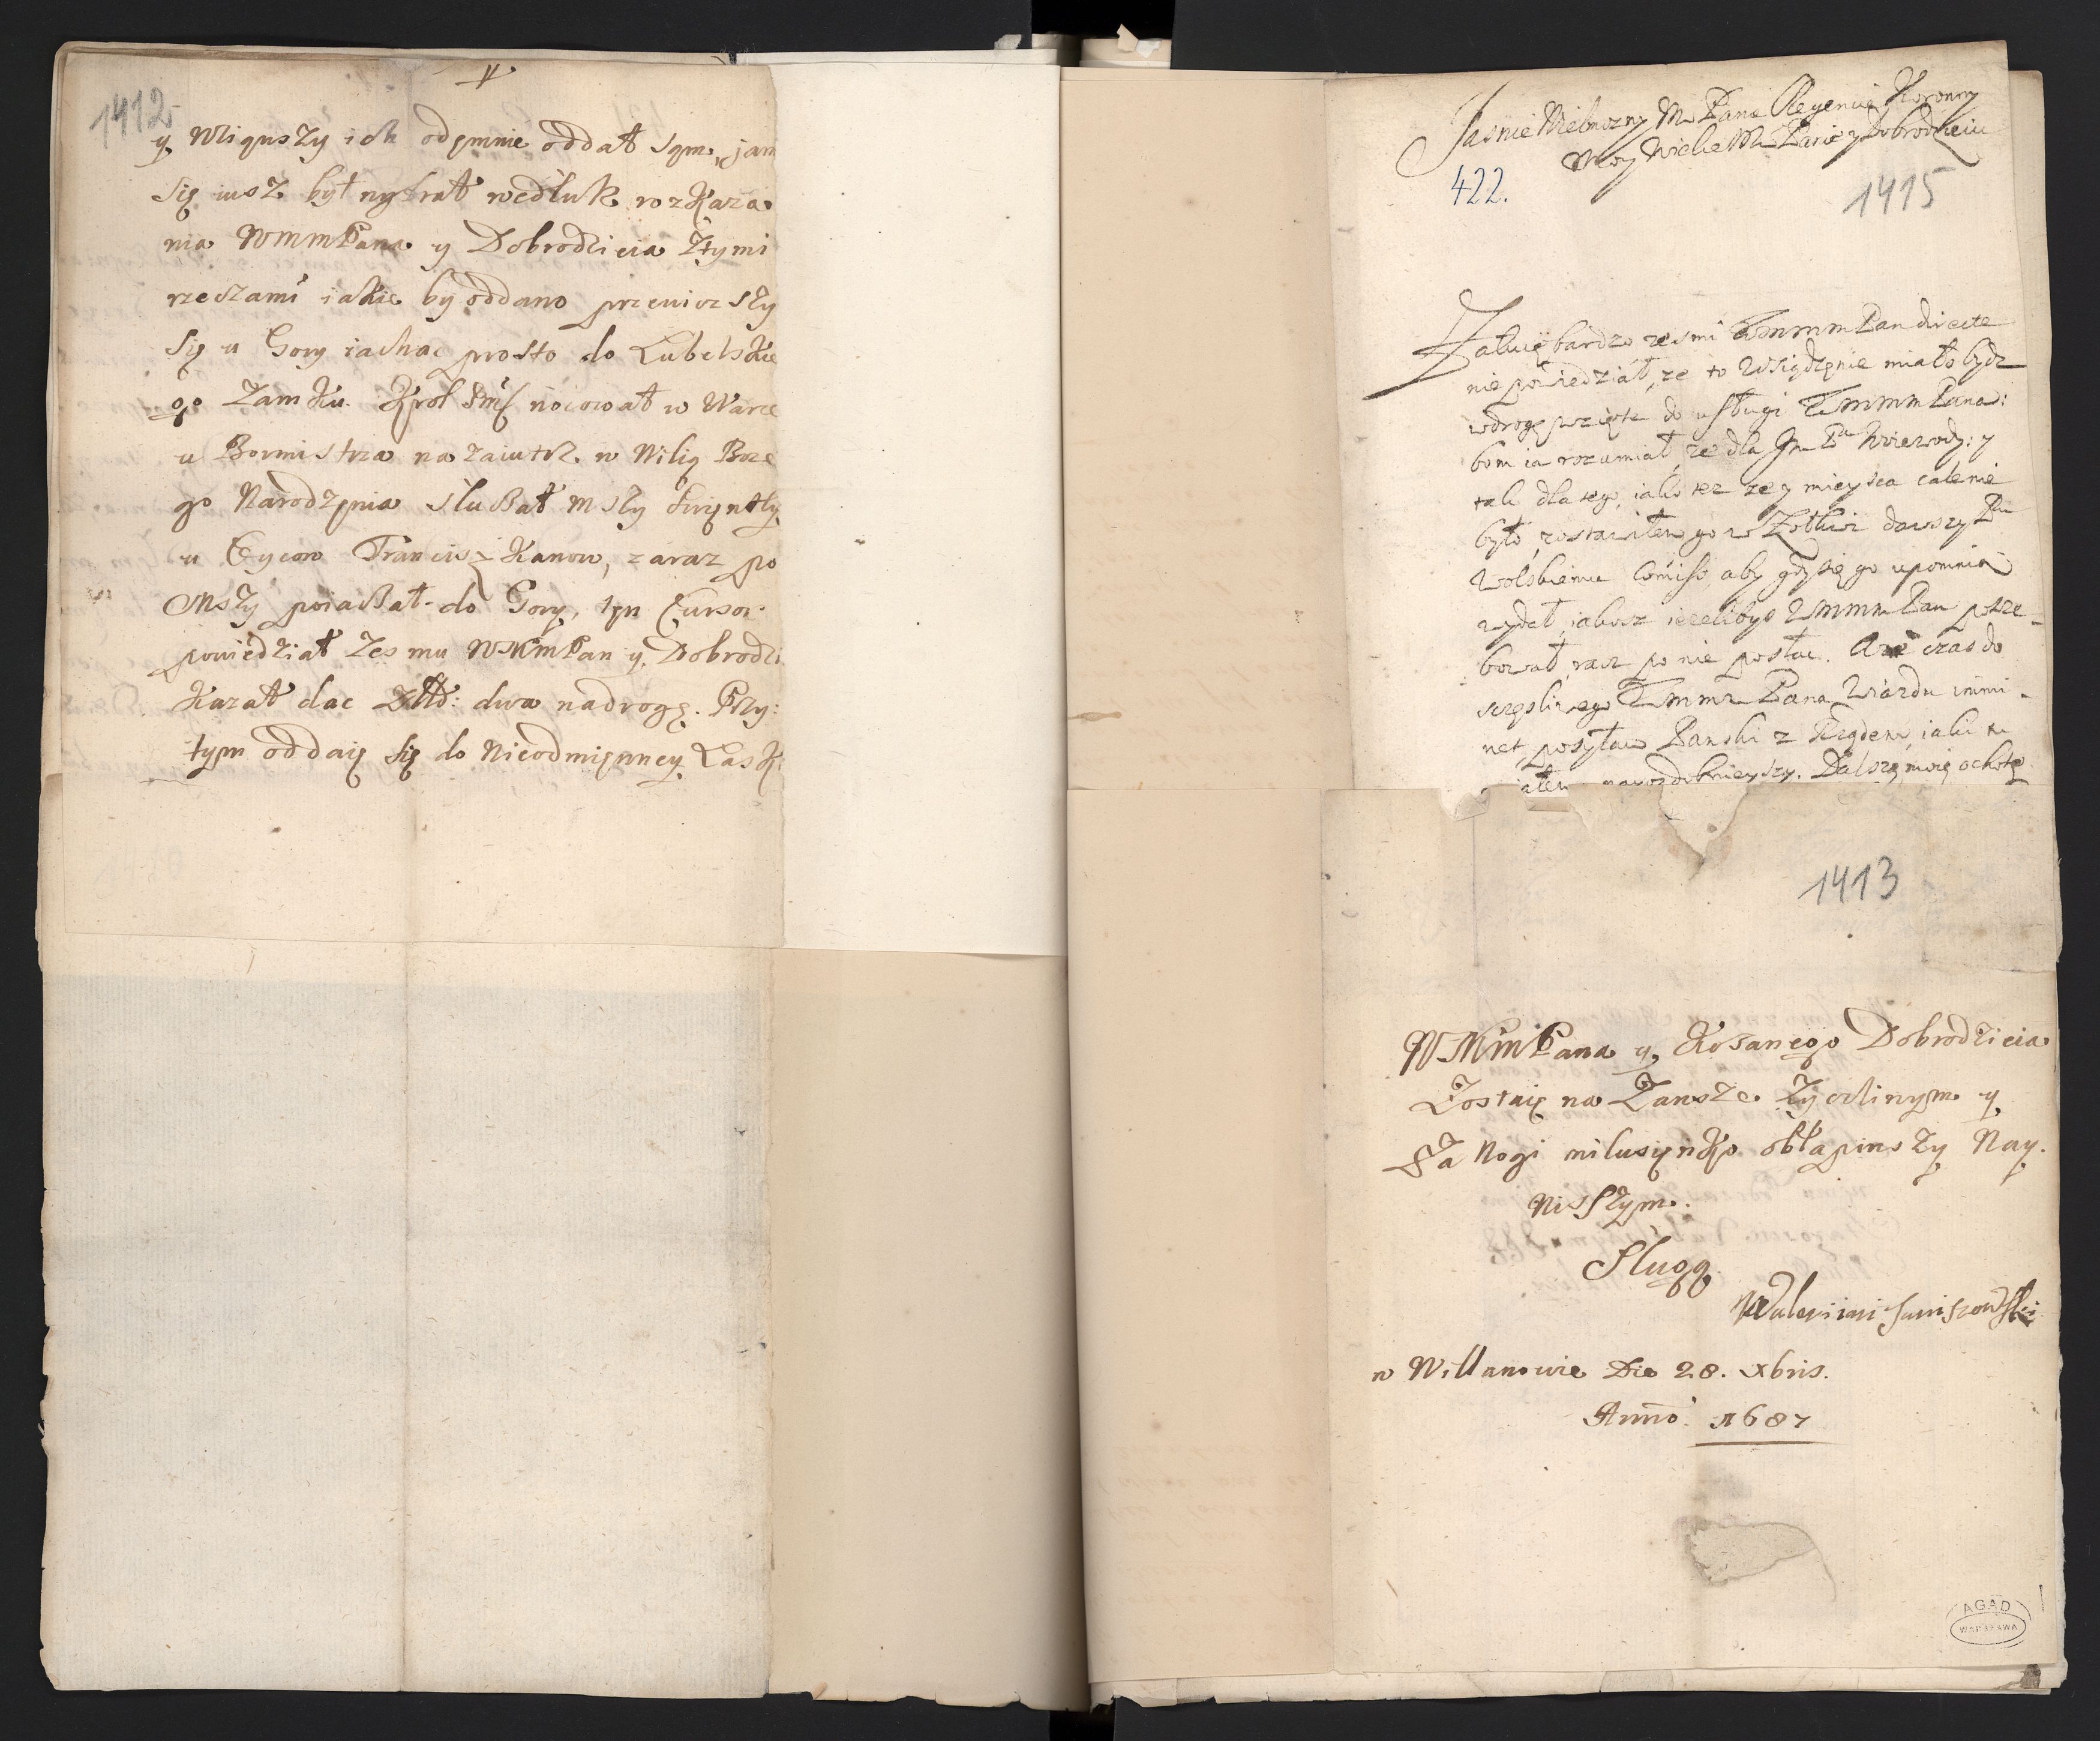 1412
y Wziąuszy ich odęmnie oddał sąm, jam
się iusz był nybrał wedłuk rozkaza
nia WMMPana y Dobrodzieia Ztymi
rzeczami iakie by oddano przeniozszy
się u Gory iachac prosto do Lubelskie
go Zamku. Krol Jmć nocował w Warce
u Bormistrza nazaiutrz w Wilią Boze
go Narodzęnia słuchał mszy Swięnty
u Oycow Franciszkanow, zaraz po
Mszy poiachał do Gory, tęn Cursor
powiedział Zes mu WMMPan y Dobrodzi
kazał dac zł: dwa nadrogę. Przy:
tym oddaię się do Nieodmięnney Lask
Jasnie Wielmozny M Panie Regencie Koronny
Moy Wielce M Panie y Dobrodzieiu
422.
1415
Załuię bardzo zesmi WMMM Pan directe
nie powiedział, ze to Wsiędzęnie miało bydz
w drogę wzięte do usługi WMMM Pana:
bom ia rozumiał, ze dla Jm Pa Woiewody: y
tak dla tego, iako tez ze y mieysca cale nie
było, zostawiłem go w Zołkwi dawszy Pu
Wolskiemu Comiss, aby gdy się go upomnią
wydał, iakosz iezelibys WMMM Pan potrze-
bował, racz po nie posłac. A ze czas do
sczęsliwego WMM Pana Wiazdu immi-
net, posyłam Panski z Rzędem, iaki tu
miałem nayozdobnieyszy. Dalszą moię ochotę
1413
WMMPana y Kochanego Dobrodzieia
Zostaię na Zawsze Zyczliwym y
Za Nogi milusięnko obłapiwszy Nay.
Nisszym.
Sługą
w Willanowie Die 28. Xbris.
Anno. 1687
AGAD
WARSZAWA